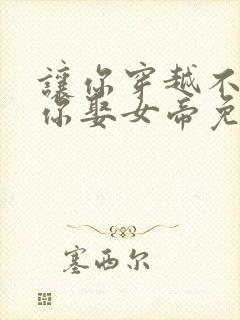 讓你穿越不
你娶女帝免
塞西尔